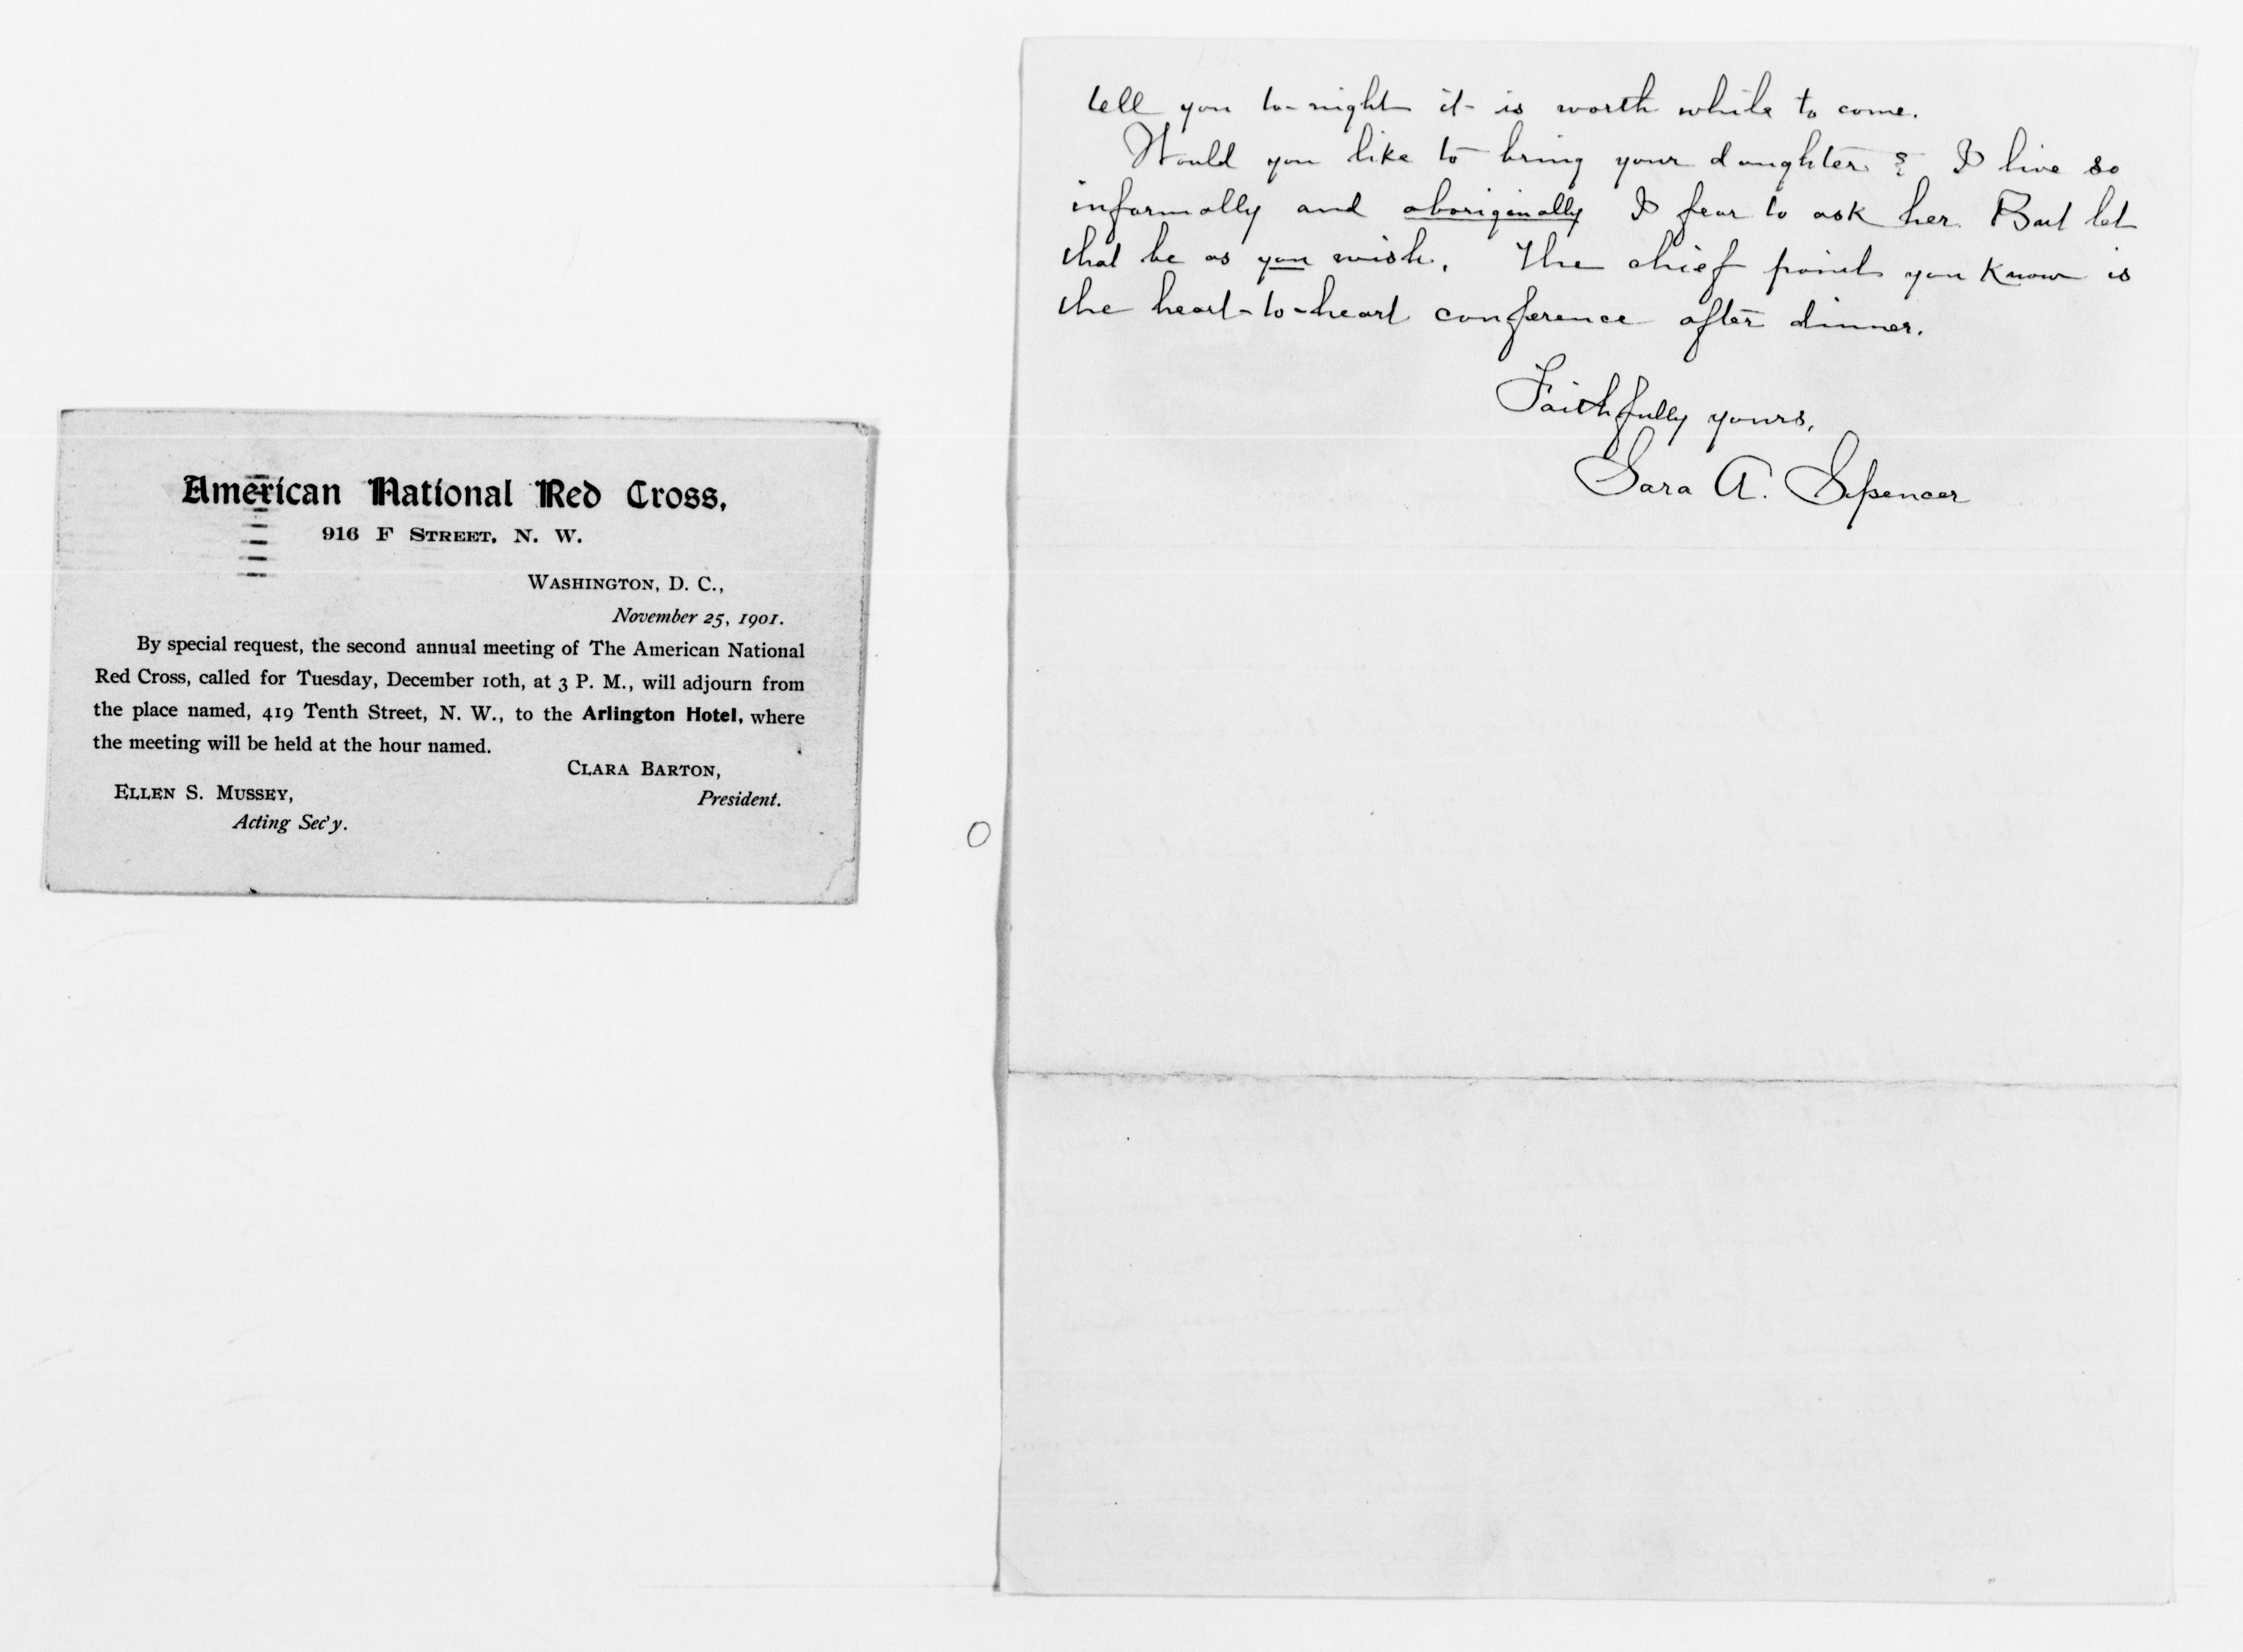 American National Red Cross,
916 F Street, N. W.
Washington, D. C.,
November 25, 1901.
By special request, the second annual meeting of The American National
Red Cross, called for Tuesday, December 10th, at 3 P. M., will adjourn from
the place named, 419 Tenth Street, N. W., to the Arlington Hotel, where
the meeting will be held at the hour named.
Clara Barton,
President.
Ellen S. Mussey,
Acting Sec'y.
tell you to-night it is worth while to come.
Would you like to bring your daughter? I live so
informally and aboriginally I fear to ask her. But let
that be as you wish. The chief point you know is
the heart-to-heart conference after dinner.
Faithfully yours,
Sara A. Spencer